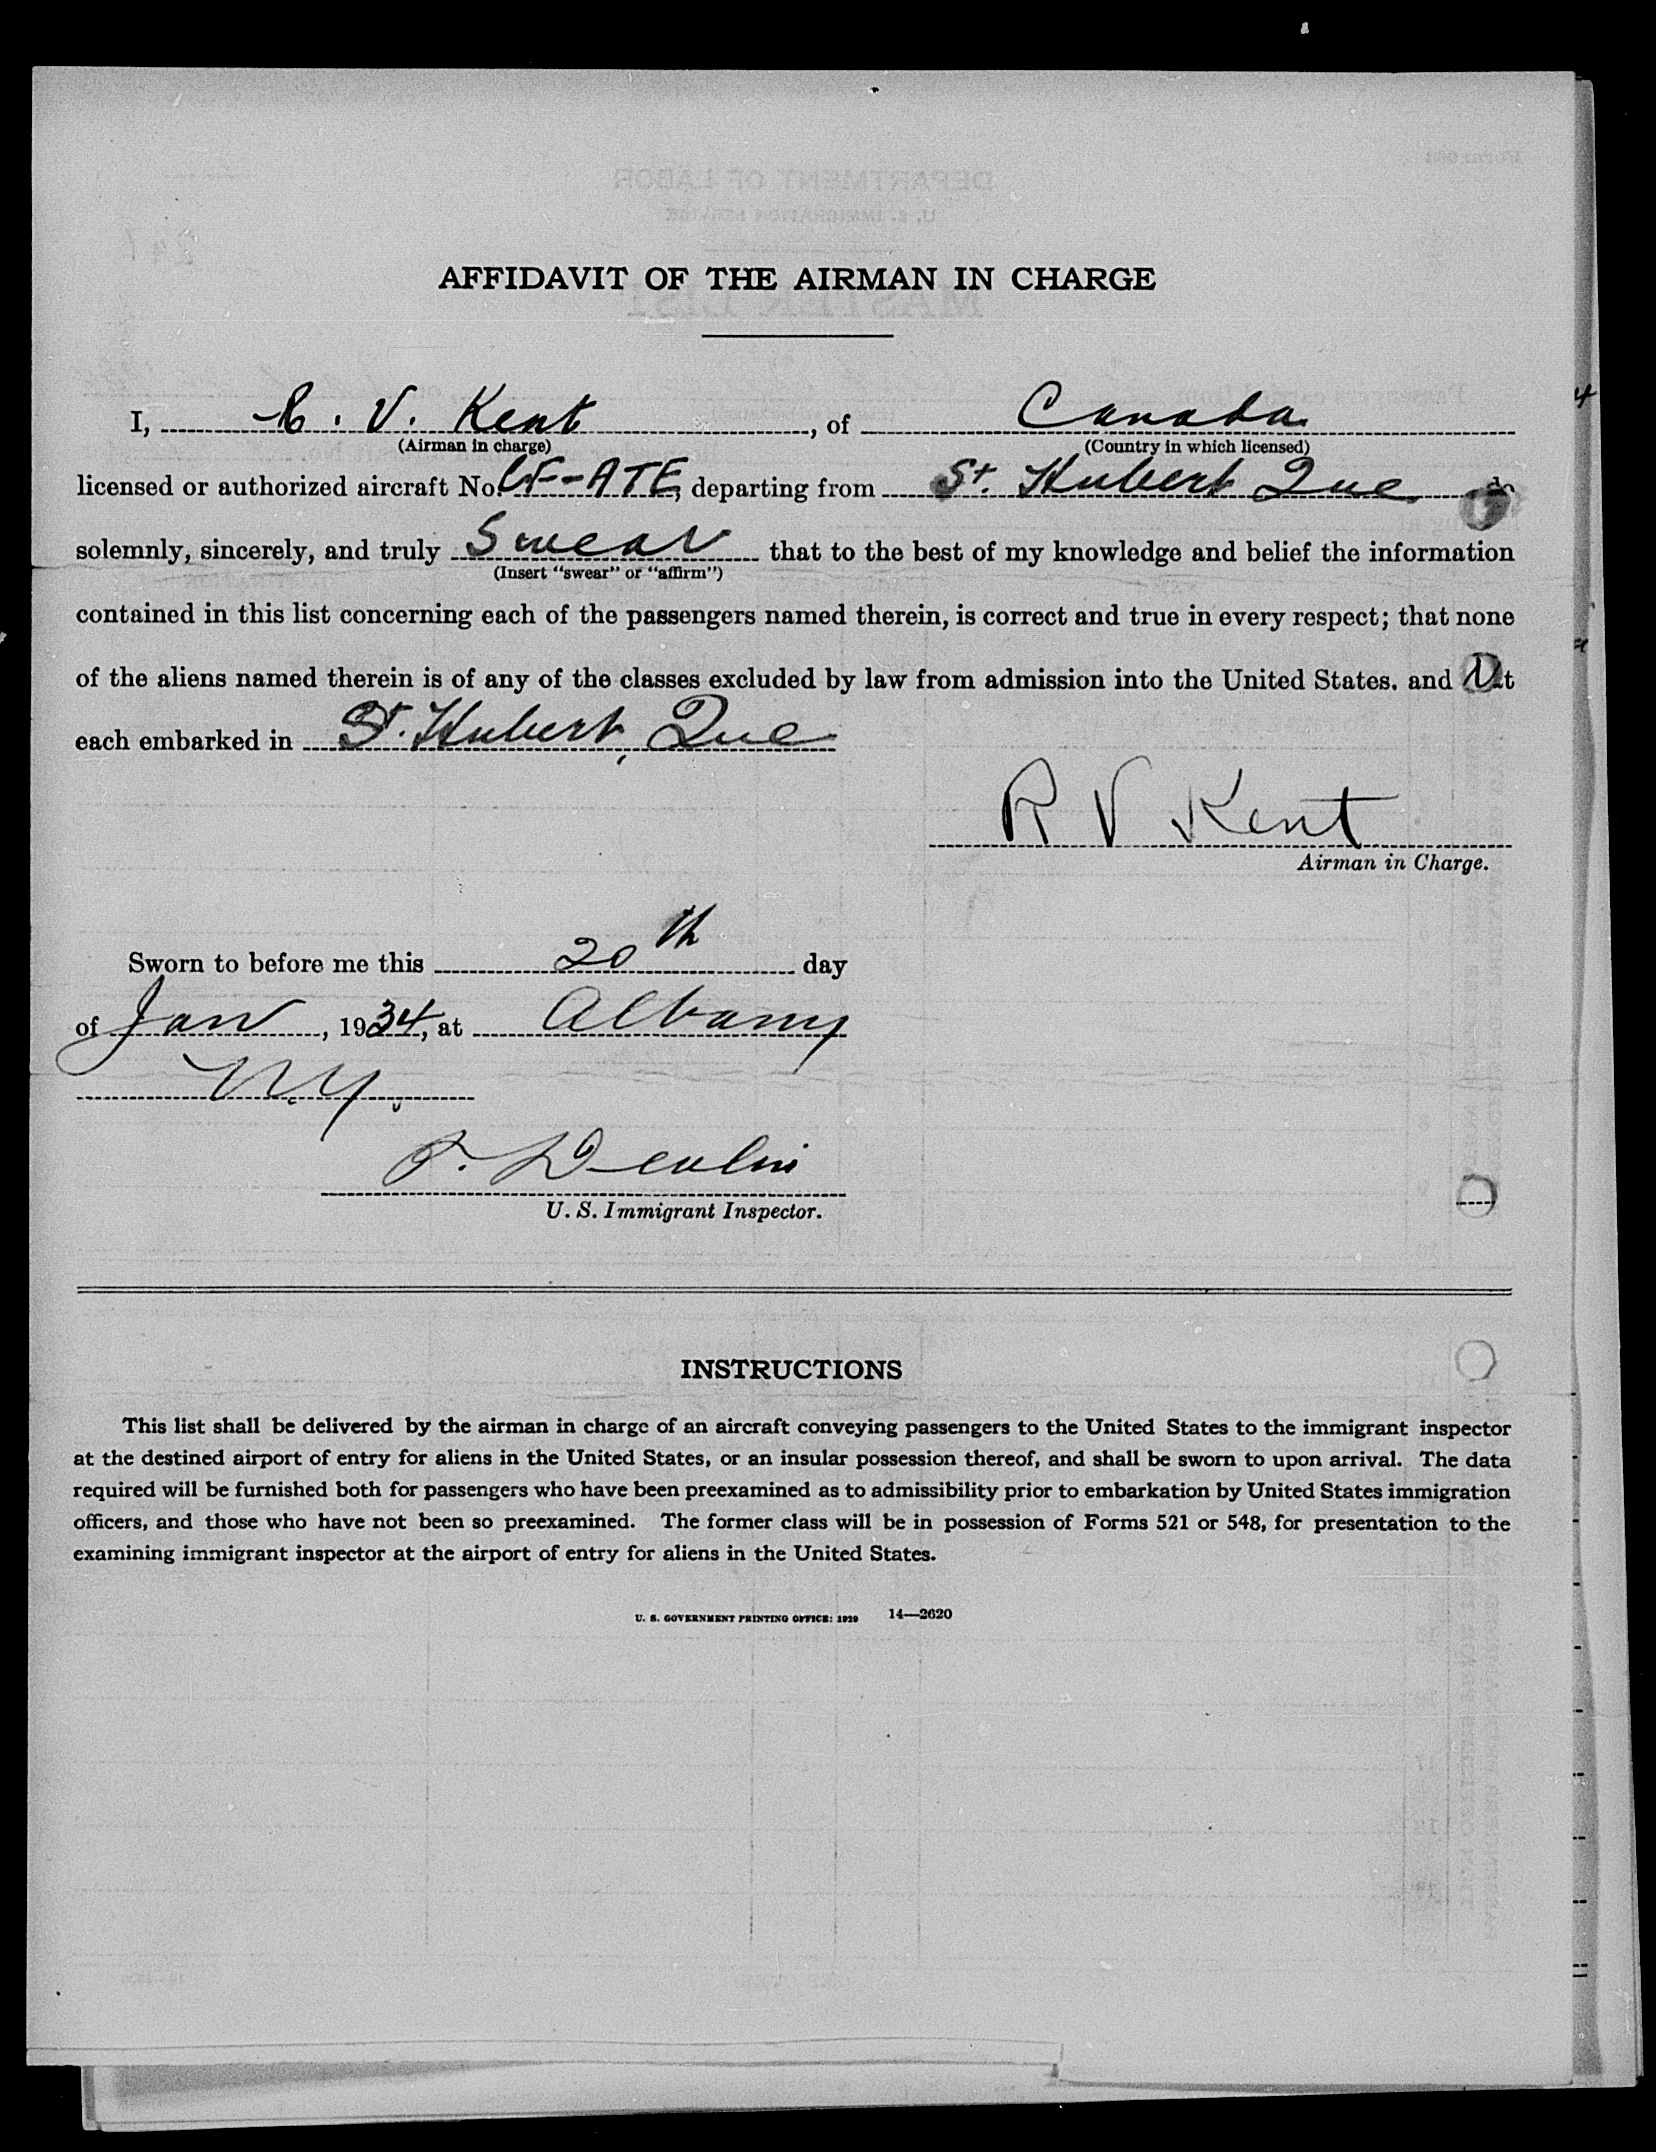 AFFIDAVIT OF THE AIRMAN IN CHARGE
I, R. V. Kent, of Canada
(Airman in charge) (Country in which licensed)
licensed or authorized aircraft No. CF-ATE, departing from St. Hubert Que do
solemnly, sincerely, and truly Swear that to the best of my knowledge and belief the information
(Insert "swear" or "affirm")
contained in this list concerning each of the passengers named therein, is correct and true in every respect; that none
of the aliens named therein is of any of the classes excluded by law from admission into the United States. and
each embarked in St. Hubert, Que
R V Kent
Airman in Charge.
Sworn to before me this 20th day
of Jan, 1934, at Albany
N.Y.
U. S. Immigrant Inspector.
INSTRUCTIONS
This list shall be delivered by the airman in charge of an aircraft conveying passengers to the United States to the immigrant inspector
at the destined airport of entry for aliens in the United States, or an insular possession thereof, and shall be sworn to upon arrival. The data
required will be furnished both for passengers who have been preexamined as to admissibility prior to embarkation by United States immigration
officers, and those who have not been so preexamined. The former class will be in possession of Forms 521 or 548, for presentation to the
examining immigrant inspector at the airport of entry for aliens in the United States.
U. S. GOVERNMENT PRINTING OFFICE: 1929 14—2620